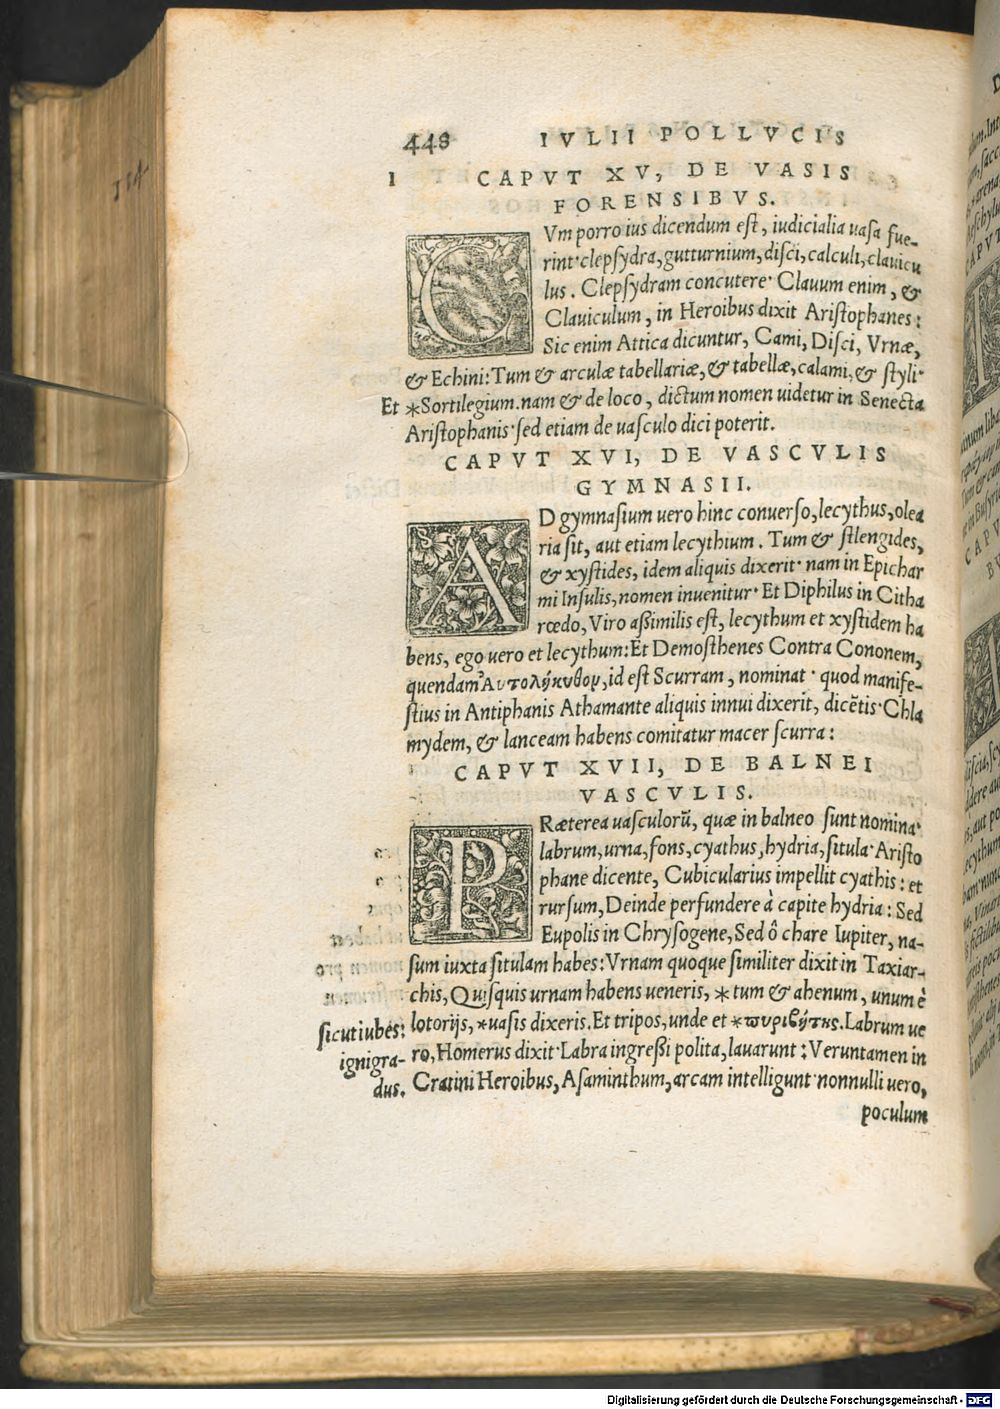 448 IVLII POLLVCIS
I CAPVT XV, DE VASIS
FORENSIBVS.
CVm porro ius dicendum est, iudicialia uasa fue-
rint· clepsydra, gutturnium, disci, calculi, clauicu
lus. Clepsydram concutere· Clauum enim, &
Clauiculum, in Heroibus dixit Aristophanes:
Sic enim Attica dicuntur, Cami, Disci, Vrnæ,
& Echini: Tum & arculæ tabellariæ, & tabellæ, calami, & styli·
Et *Sortilegium. nam & de loco, dictum nomen uidetur in Senecta
Aristophanis· sed etiam de uasculo dici poterit.
CAPVT XVI, DE VASCVLIS
GYMNASII.
AD gymnasium uero hinc conuerso, lecythus, olea
ria sit, aut etiam lecythium. Tum & stlengides,
& xystides, idem aliquis dixerit· nam in Epichar
mi Insulis, nomen inuenitur· Et Diphilus in Citha
rœdo, Viro assimilis est, lecythum et xystidem ha
bens, ego uero et lecythum: Et Demosthenes Contra Cononem,
quendam Αὐτολήκυθον, id est Scurram, nominat· quod manife-
stius in Antiphanis Athamante aliquis innui dixerit, dicẽtis· Chla
mydem, & lanceam habens comitatur macer scurra:
CAPVT XVII, DE BALNEI
VASCVLIS.
PRæterea uasculorũ, quæ in balneo sunt nomina·
labrum, urna, fons, cyathus, hydria, situla· Aristo
phane dicente, Cubicularius impellit cyathis: et
rursum, Deinde perfundere à capite hydria: Sed
Eupolis in Chrysogene, Sed ô chare Iupiter, na-
sum iuxta situlam habes: Vrnam quoque similiter dixit in Taxiar-
chis, Quisquis urnam habens ueneris, *tum & ahenum, unum è
sicut iubes: lotorijs, *uasis dixeris. Et tripos, unde et *πυριβήτης. Labrum ue
ignigra- ro, Homerus dixit· Labra ingressi polita, lauarunt: Veruntamen in
dus. Cratini Heroibus, Asaminthum, arcam intelligunt· nonnulli uero,
poculum
114
Digitalisierung gefördert durch die Deutsche Forschungsgemeinschaft - DFG